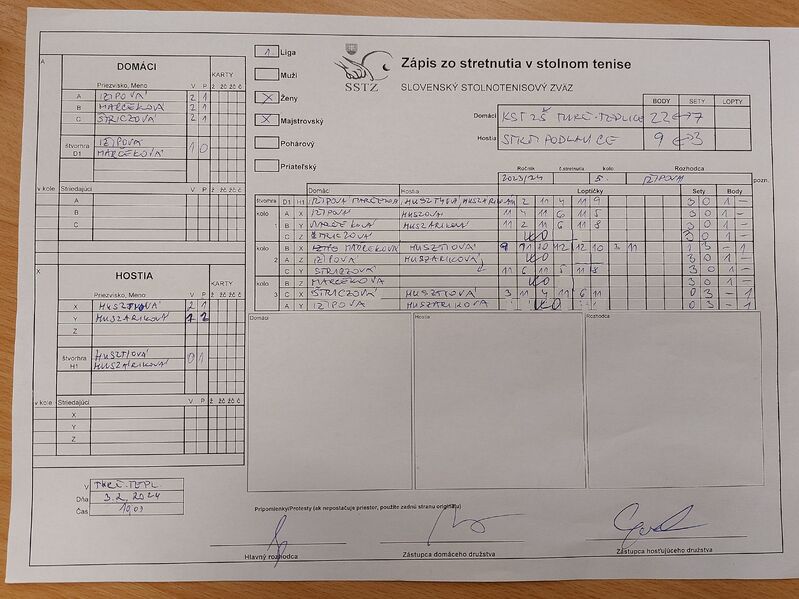 Zápis zo stretnutia v stolnom tenise
SLOVENSKÝ STOLNOTENISOVÝ ZVÄZ
SSTZ
1. Liga
Muži
X Ženy
X Majstrovský
Pohárový
Priateľský
BODY SETY LOPTY
Domáci KST ZŠ TURČ. TEPLICE 22 7
Hostia STKT PODLAVICE 9 3
Ročník č.stretnutia kolo Rozhodca
2023/24 5. IZIPOVÁ pozn.
A
DOMÁCI
KARTY
Priezvisko, Meno V P ž žč žč č
A IZIPOVÁ 2 1
B MARČEKOVÁ 2 1
C STRICZOVÁ 2 1
štvorhra D1 IZIPOVÁ 1 0
MARČEKOVÁ
v kole Striedajúci V P ž žč žč č
A
B
C
X
HOSTIA
KARTY
Priezvisko, Meno V P ž žč žč č
X HUSZTIOVÁ 2 1
Y HUSZÁRIKOVÁ 1 2
Z
štvorhra H1 HUSZTIOVÁ 0 1
HUSZÁRIKOVÁ
v kole Striedajúci V P ž žč žč č
X
Y
Z
Domáci Hostia Loptičky Sety Body
štvorhra D1 H1 IZIPOVÁ MARČEKOVÁ 11 2 11 4 11 9 3 0 1 -
kolo A X IZIPOVÁ 11 4 11 6 11 5 3 0 1 -
1 B Y MARČEKOVÁ HUSZÁRIKOVÁ 11 2 11 6 11 8 3 0 1 -
C Z STRICZOVÁ WO 3 0 1 -
kolo B X MARČEKOVÁ HUSZTIOVÁ 12 10 3 11 1 3 - 1
2 A Z IZIPOVÁ HUSZÁRIKOVÁ WO 3 0 1 -
C Y STRICZOVÁ 11 6 11 5 11 8 3 0 1 -
kolo B Z MARČEKOVÁ 3 0 1 -
3 C X STRICZOVÁ HUSZTIOVÁ 3 11 4 11 6 11 0 3 - 1
A Y IZIPOVÁ HUSZÁRIKOVÁ WO 0 3 - 1
Domáci Hostia Rozhodca
V TURČ. TEPL.
Dňa 3.2.2024
Čas
Pripomienky/Protesty (ak nepostačuje priestor, použite zadnú stranu originálu)
Hlavný rozhodca Zástupca domáceho družstva Zástupca hosťujúceho družstva